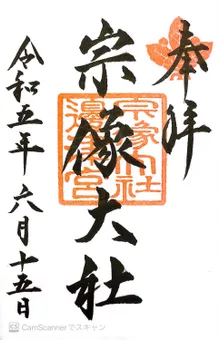 奉拝
宗像大社
宗像大社
邊津宮
令和五年六月十五日
CamScannerでスキャン